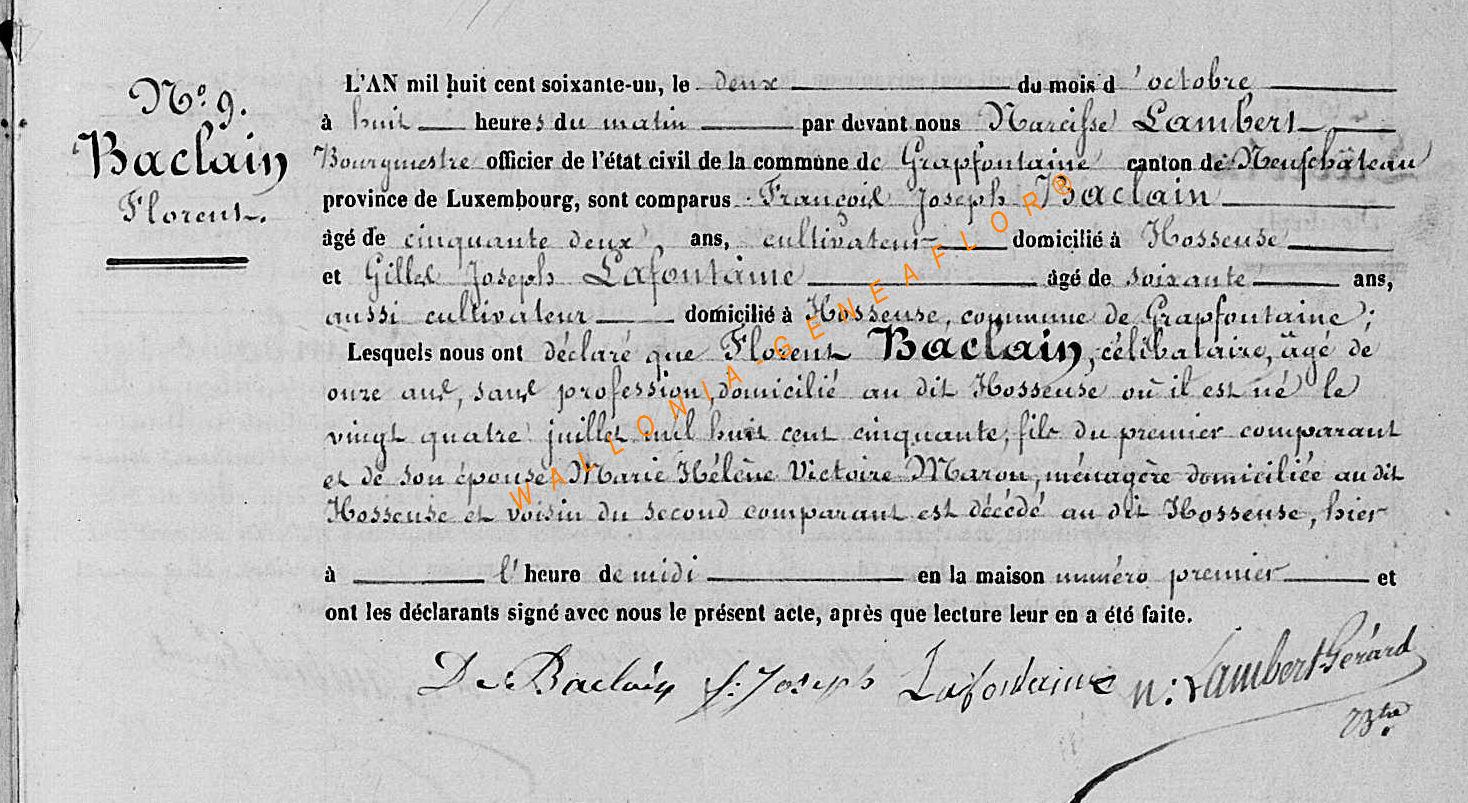 N° 9.
Baclain
Florent.
L'AN mil huit cent soixante-un, le deux du mois d'octobre
à huit heures du matin par devant nous Narcisse Lambert
Bourgmestre officier de l'état civil de la commune de Grapfontaine canton de Neufchâteau
province de Luxembourg, sont comparus François Joseph Baclain
âgé de cinquante deux ans, cultivateur domicilié à Hosseuse
et Gilles Joseph Lafontaine âgé de soixante ans,
aussi cultivateur domicilié à Hosseuse, commune de Grapfontaine;
Lesquels nous ont déclaré que Florent Baclain, célibataire, âgé de
onze ans, sans profession, domicilié au dit Hosseuse où il est né le
vingt quatre juillet mil huit cent cinquante, fils du premier comparant
et de son épouse Marie Hélène Victoire Maron, ménagère domiciliée au dit
Hosseuse et voisin du second comparant est décédé au dit Hosseuse, hier
à l'heure de midi en la maison numéro premier et
ont les déclarants signé avec nous le présent acte, après que lecture leur en a été faite.
De Baclain f. Joseph Lafontaine n: Lambert Gérard
WALLONIA-GENEAFLOR®